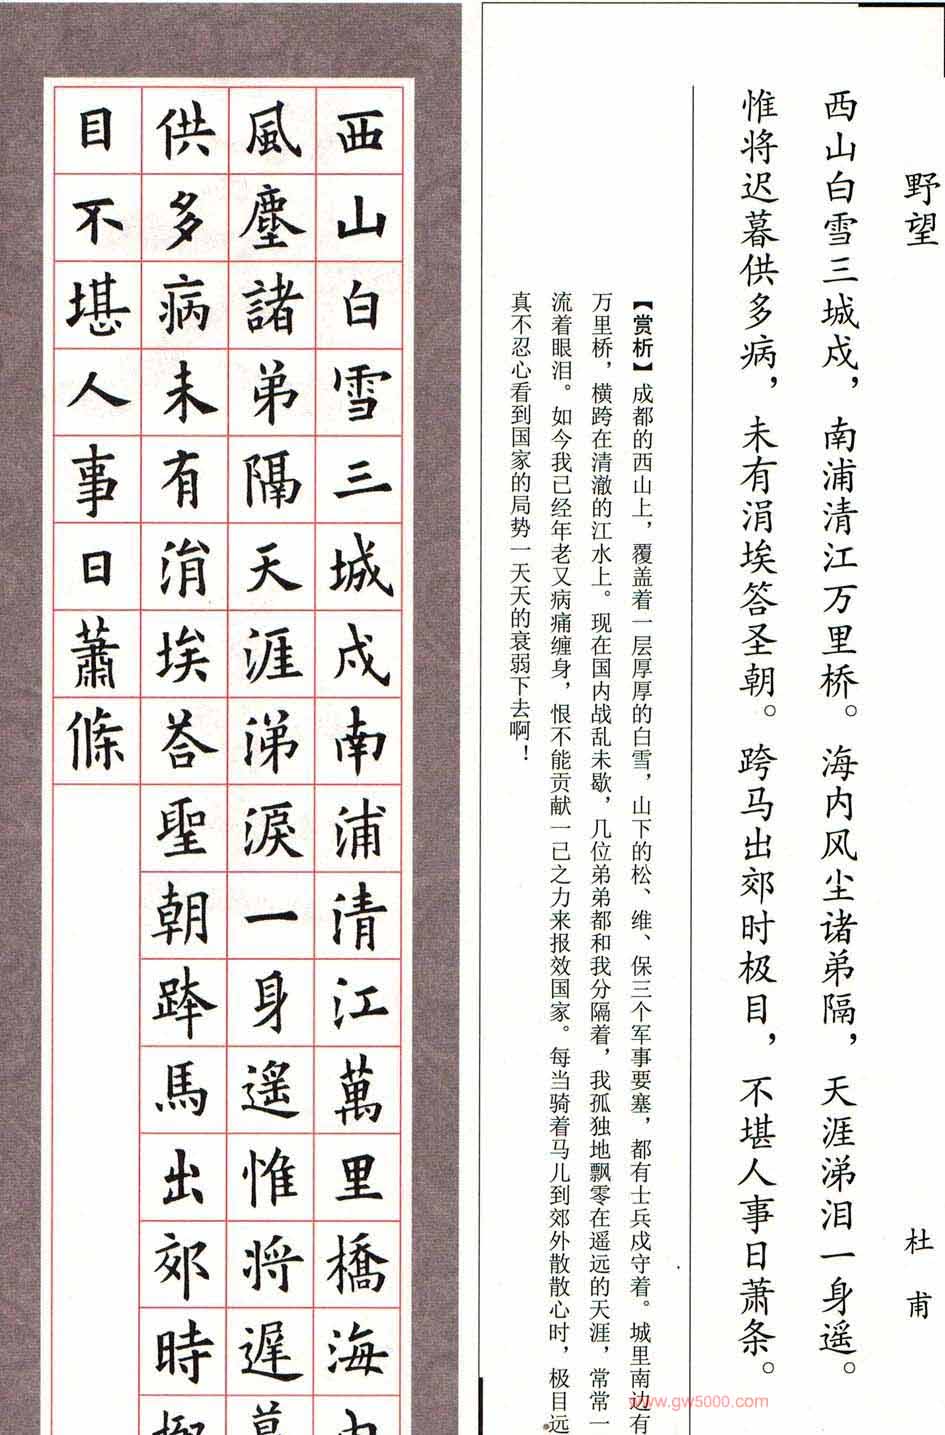 野望
杜甫
西山白雪三城戍，南浦清江万里桥。海内风尘诸弟隔，天涯涕泪一身遥。
惟将迟暮供多病，未有涓埃答圣朝。跨马出郊时极目，不堪人事日萧条。
【赏析】成都的西山上，覆盖着一层厚厚的白雪，山下的松、维、保三个军事要塞，都有士兵戍守着。城里南边有
万里桥，横跨在清澈的江水上。现在国内战乱未歇，几位弟弟都和我分隔着，我孤独地飘零在遥远的天涯，常常一
流着眼泪。如今我已经年老又病痛缠身，恨不能贡献一己之力来报效国家。每当骑着马儿到郊外散散心时，极目远
真不忍心看到国家的局势一天天的衰弱下去啊！
西山白雪三城戍南浦清江萬里橋海
風塵諸弟隔天涯涕淚一身遙惟將遲
供多病未有涓埃荅聖朝跨馬出郊時
目不堪人事日蕭條
www.gw5000.com